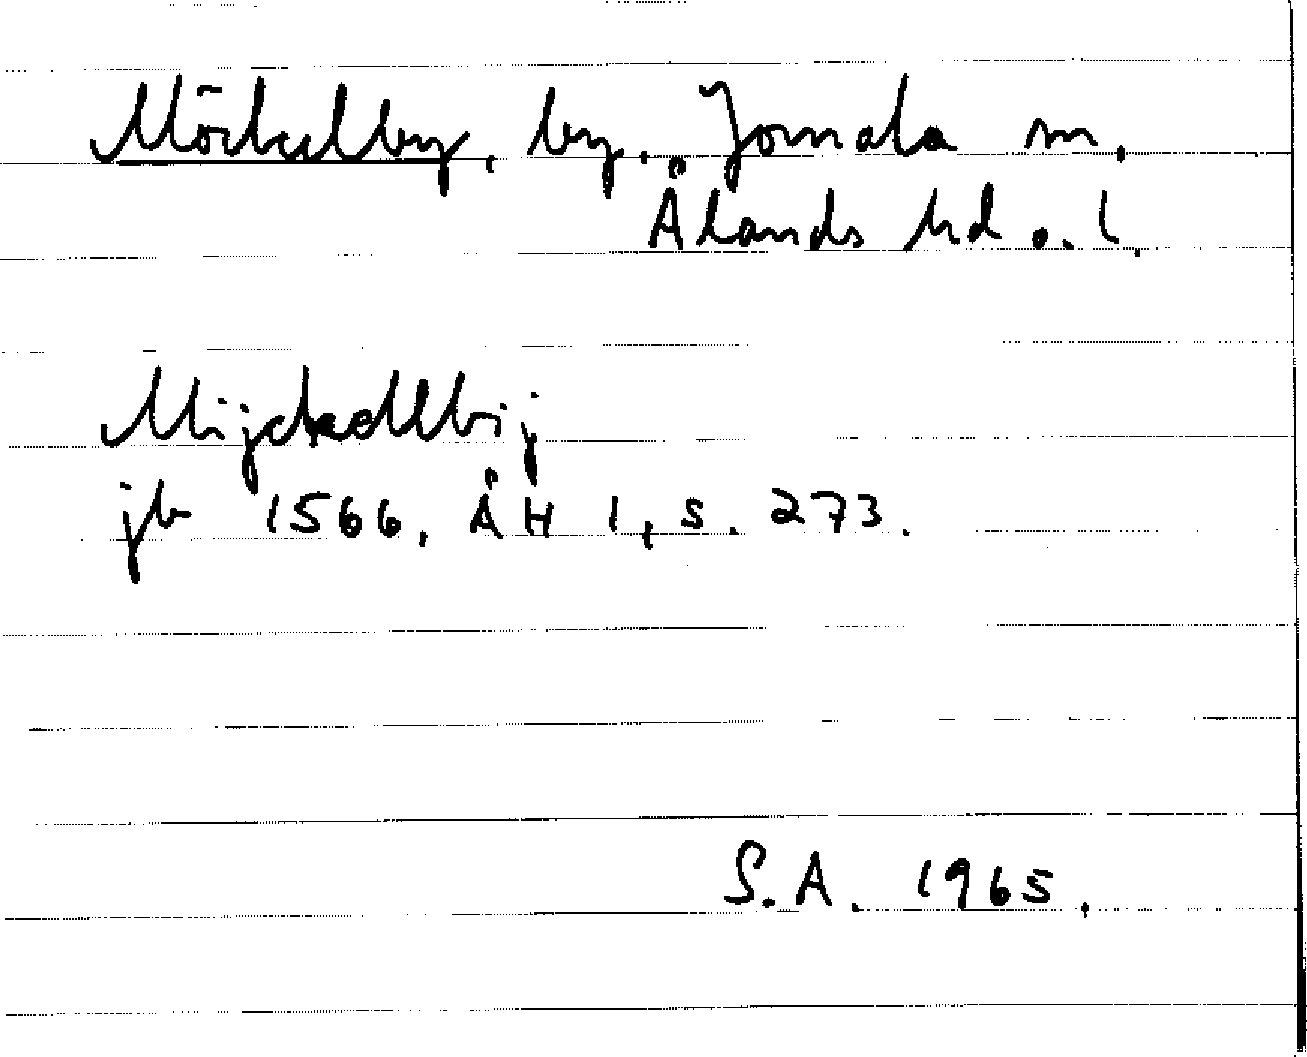 Möckelby, by. Jomala sn.
Ålands hd o. l.
Mijckelbij
jb 1566, ÅH 1, s. 273.
S.A. 1965.